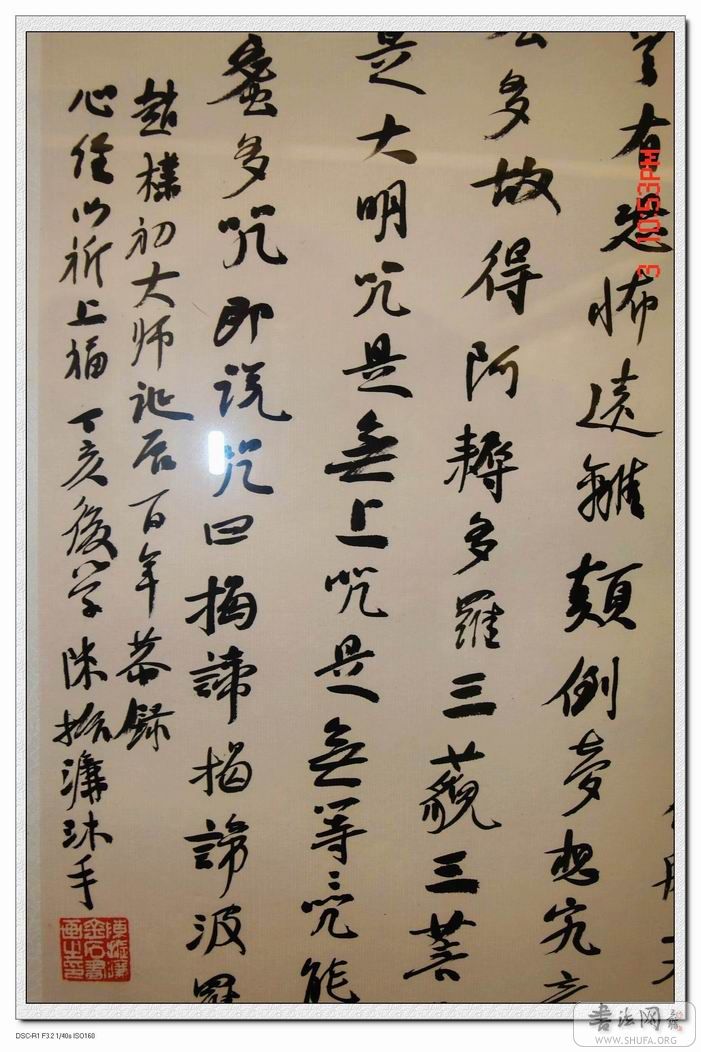 有恐怖遠離顛倒夢想究
多故得阿耨多羅三藐三菩
是大明咒是無上咒是無等〻咒能
蜜多咒即說咒曰揭諦揭諦波羅
趙樸初大师诞辰百年恭録
心经以祈上福丁亥後学陳振濂沐手
陳振濂金石書畫之印
3 10:53PM
DSC-R1 F3.2 1/40s ISO160
书法网
WWW.SHUFA.ORG